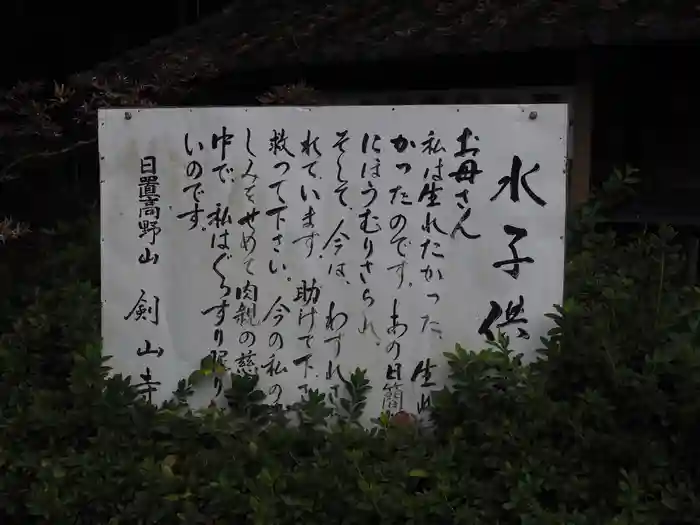 水子供
お母さん
私は生れたかった、生れ
かったのです。あの日簡
にほうむりさられ、
そして、今は、わすれ
れています。助けて下
救って下さい。今の私の
しみをせめて肉親の慈
中で、私はぐっすり眠り
いのです。
日置高野山 剣山寺